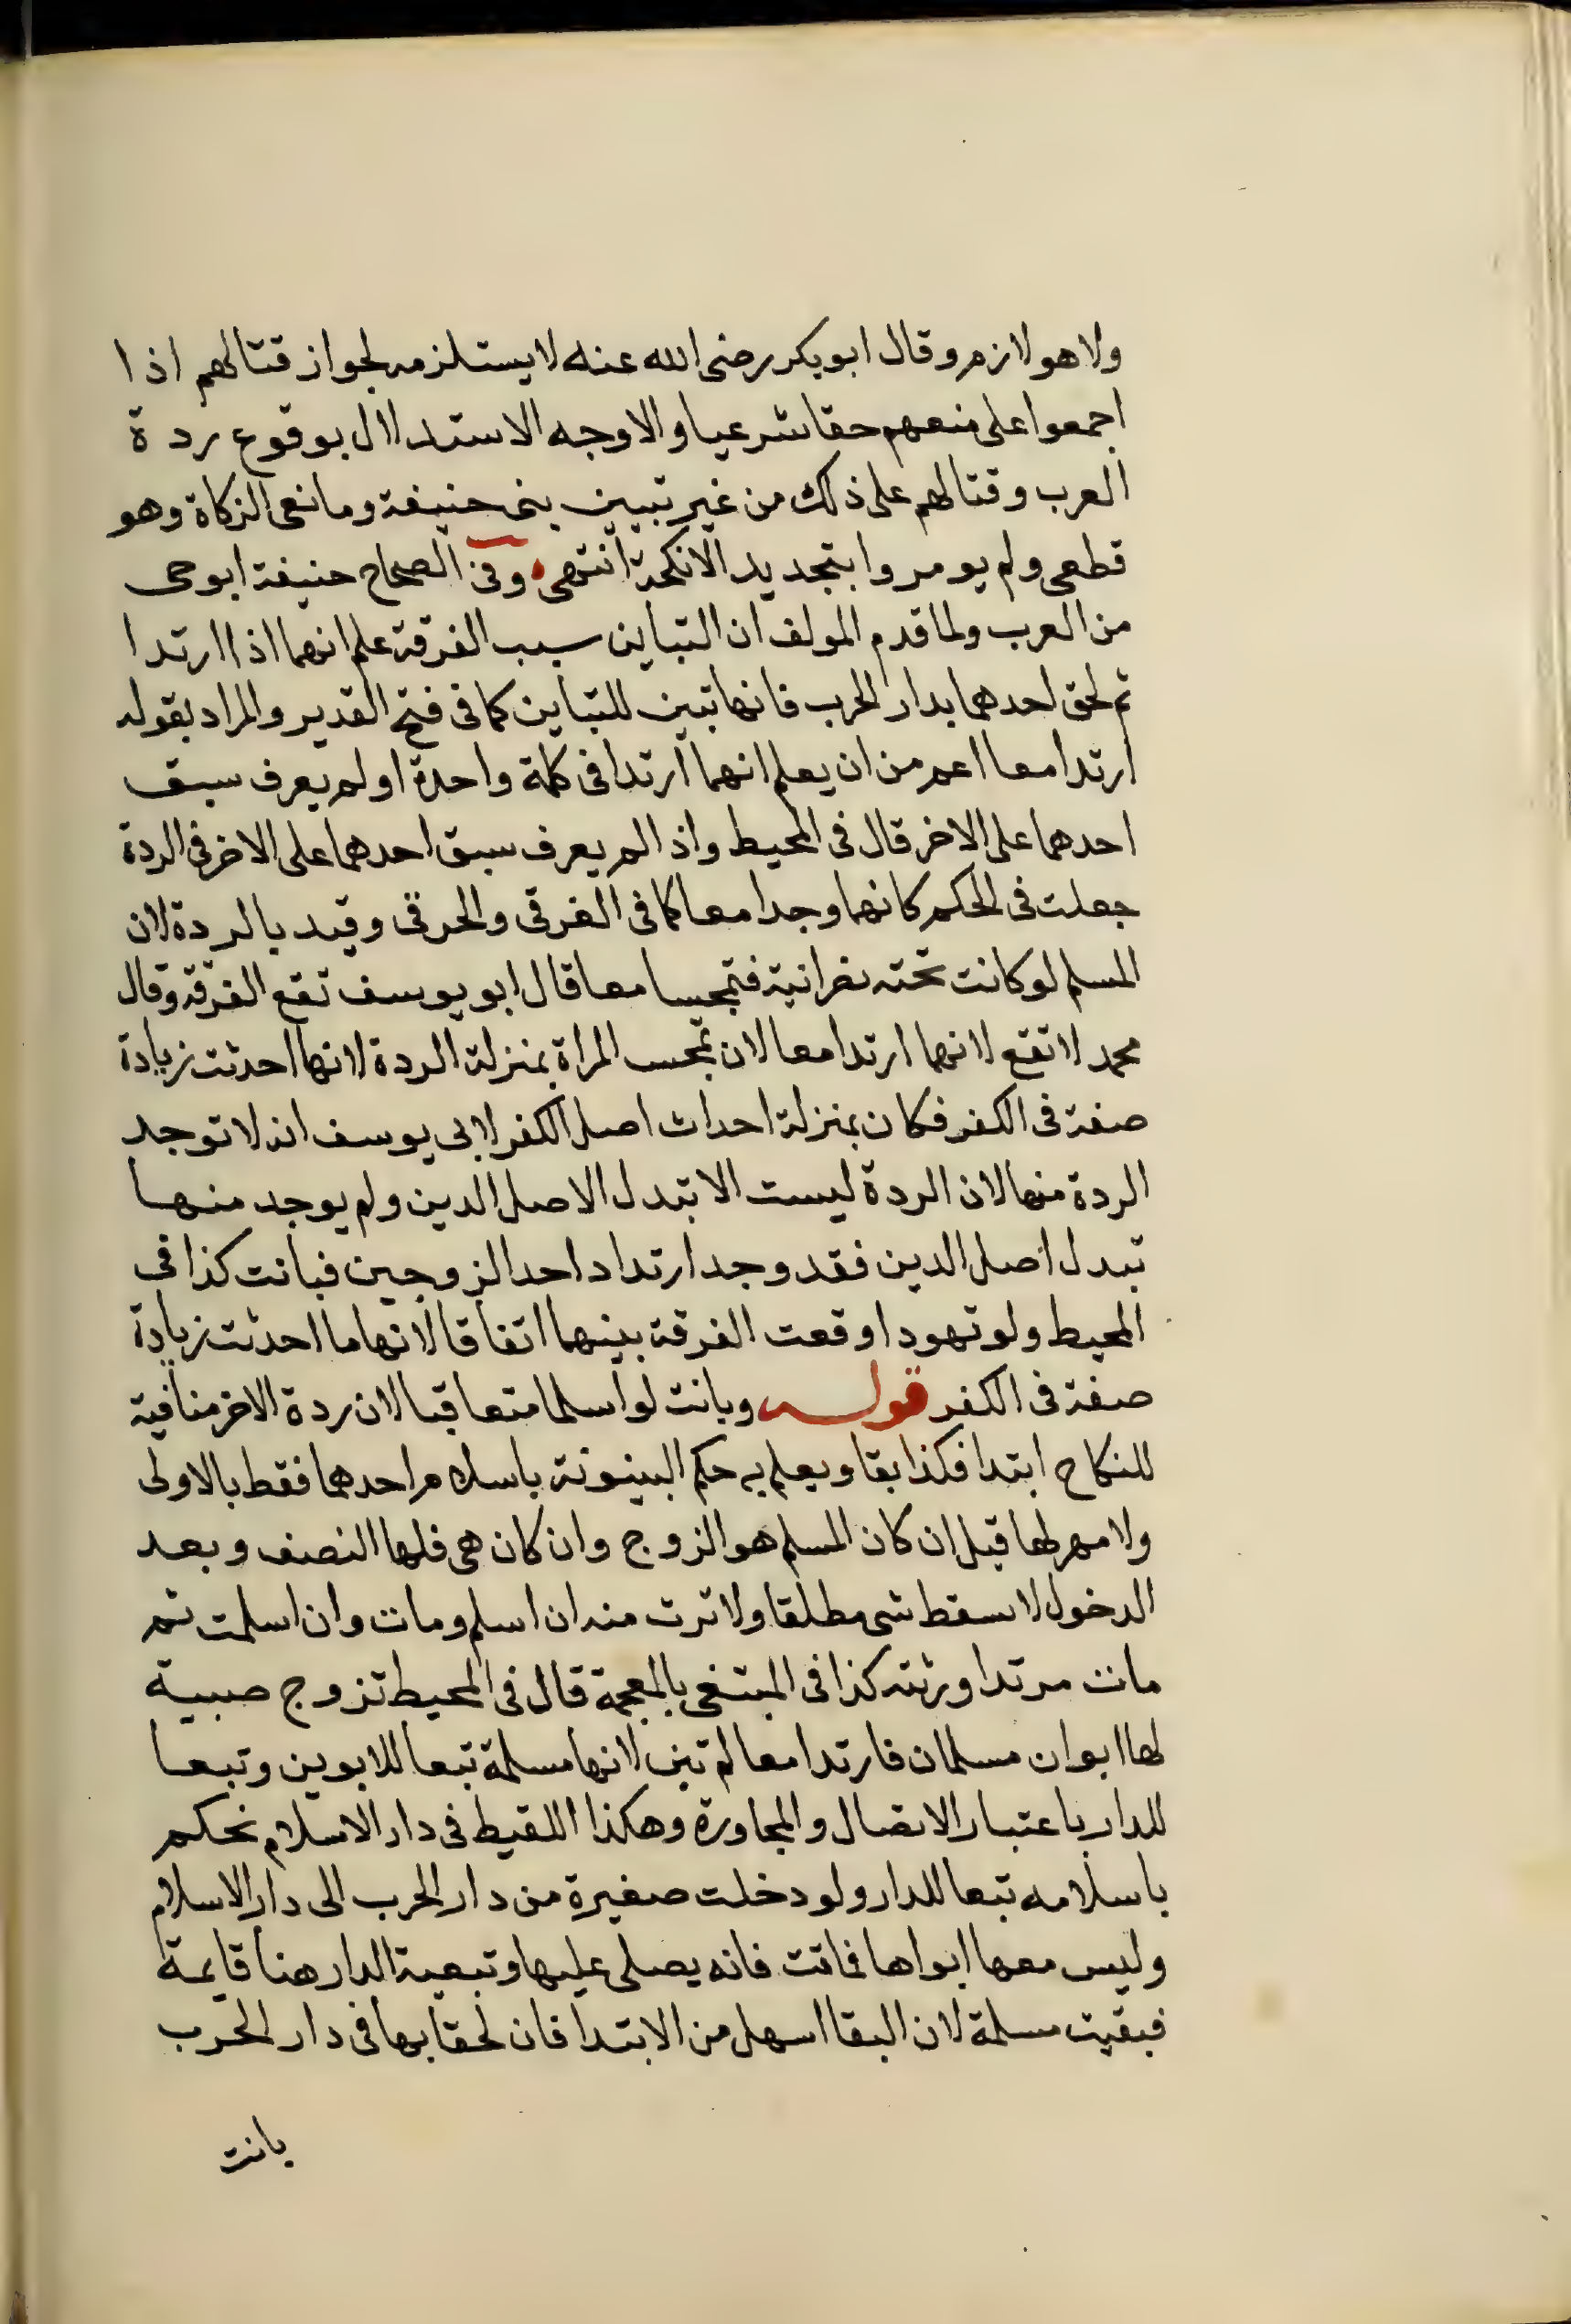 ولا هو لازم وقال ابو بكر رضى الله عنه لا يستلزمه لجواز قتالهم اذا
اجمعوا على منعهم حقا شرعيا والاوجه الاستدلال بوقوع ردة
العرب وقتالهم على ذلك من غير تبيين بنى حنيفة ومانعى الزكاة وهو
قطعى ولم يومروا بتجديد الانكحة انتهى وفى الصحاح حنيفة ابو حى
من العرب ولما قدم المولف ان التباين سبب الفرقة علم انهما اذا ارتدا
ثم لحق احدهما بدار الحرب فانها تبين للتباين كما فى فتح القدير والمراد بقوله
ارتدا معا اعم من ان يعلم انهما ارتدا فى كلمة واحدة او لم يعرف سبق
احدهما على الاخر قال فى المحيط واذا لم يعرف سبق احدهما على الاخر فى الردة
جعلت فى الحكم كانهما وجدا معا كما فى الغرقى والحرقى وقيد بالردة لان
المسلم لو كانت تحته نصرانية فتمجسا معا قال ابو يوسف تقع الفرقة وقال
محمد لا تقع لانهما ارتدا معا لان تمجس المراة بمنزلة الردة لانها احدثت زيادة
صفة فى الكفر فكان بمنزلة احداث اصل الكفر لابى يوسف انه لا توجد
الردة منها لان الردة ليست الا تبدل الاصل الدين ولم يوجد منها
تبدل اصل الدين فقد وجد ارتداد احد الزوجين فبانت كذا فى
المحيط ولو تهودا وقعت الفرقة بينهما اتفاقا لانها ما احدثت زيادة
صفة فى الكفر قوله وبانت لو اسلما متعاقبا لان ردة الاخر منافية
للنكاح ابتدا فكذا بقا ويعلم به حكم البينونة باسلام احدهما فقط بالاولى
ولا مهر لها قبل ان كان المسلم هو الزوج وان كان هى فلها النصف وبعد
الدخول لا يسقط شى مطلقا ولا ترث منه ان اسلم ومات وان اسلمت ثم
مات مرتدا ورثته كذا فى المبتغى بالمعجمة قال فى المحيط تزوج صبية
لها ابوان مسلمان فارتدا معا لم تبن لانها مسلمة تبعا للابوين وتبعا
للدار باعتبار الاتصال والمجاورة وهكذا اللقيط فى دار الاسلام نحكم
باسلامه تبعا للدار ولو دخلت صغيرة من دار الحرب الى دار الاسلام
وليس معها ابواها فماتت فانه يصلى عليها وتبعية الدار هنا قايمة
فبقيت مسلمة لان البقا اسهل من الابتدا فان لحقا بها فى دار الحرب
بانت